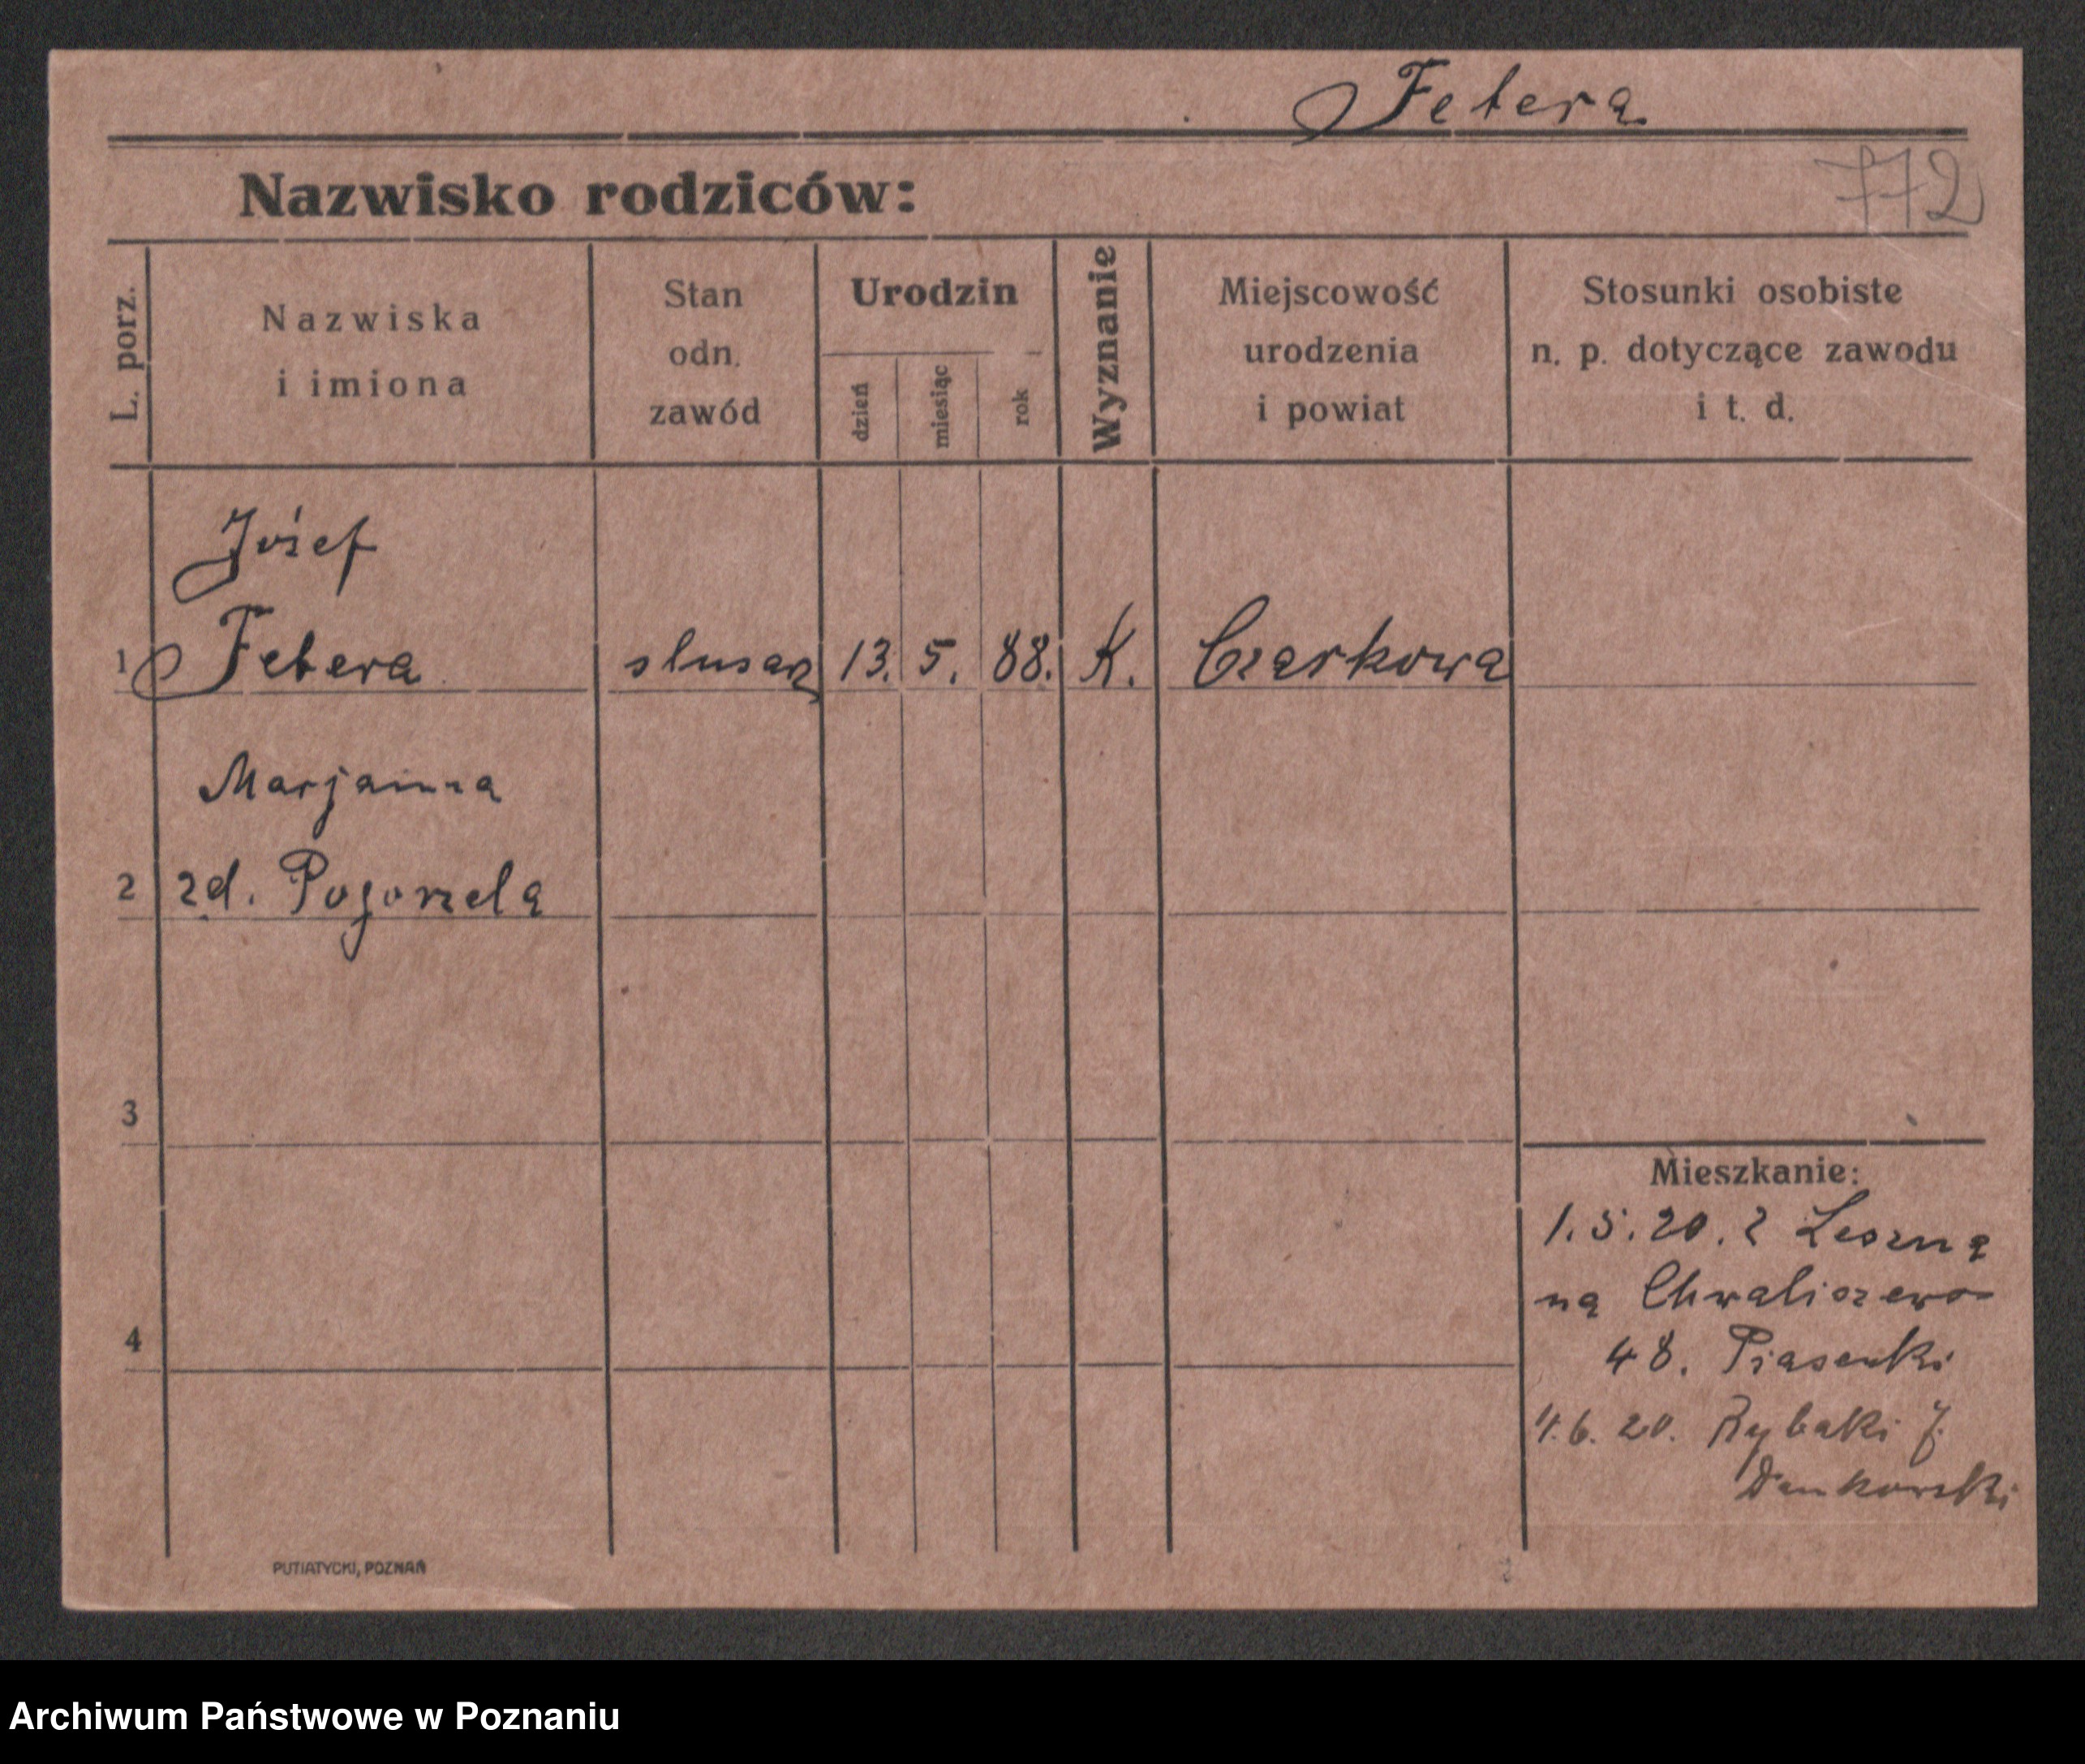 Febera
772
Nazwisko rodziców:
L. porz.
Nazwiska
i imiona
Stan
odn.
zawód
Urodzin
dzień
miesiąc
rok
Wyznanie
Miejscowość
urodzenia
i powiat
Stosunki osobiste
n. p. dotyczące zawodu
i t. d.
Józef
1 Febera slusarz 13. 5. 88. K. Czarkowa
Marjanna
2 zd. Pogorzela
3
4
Mieszkanie:
1.5.20. z Leszna
na Chwaliszewo
48. Piasecki
4.6.20. Rybaki 7.
Dankowski
PUTIATYCKI, POZNAŃ
Archiwum Państwowe w Poznaniu